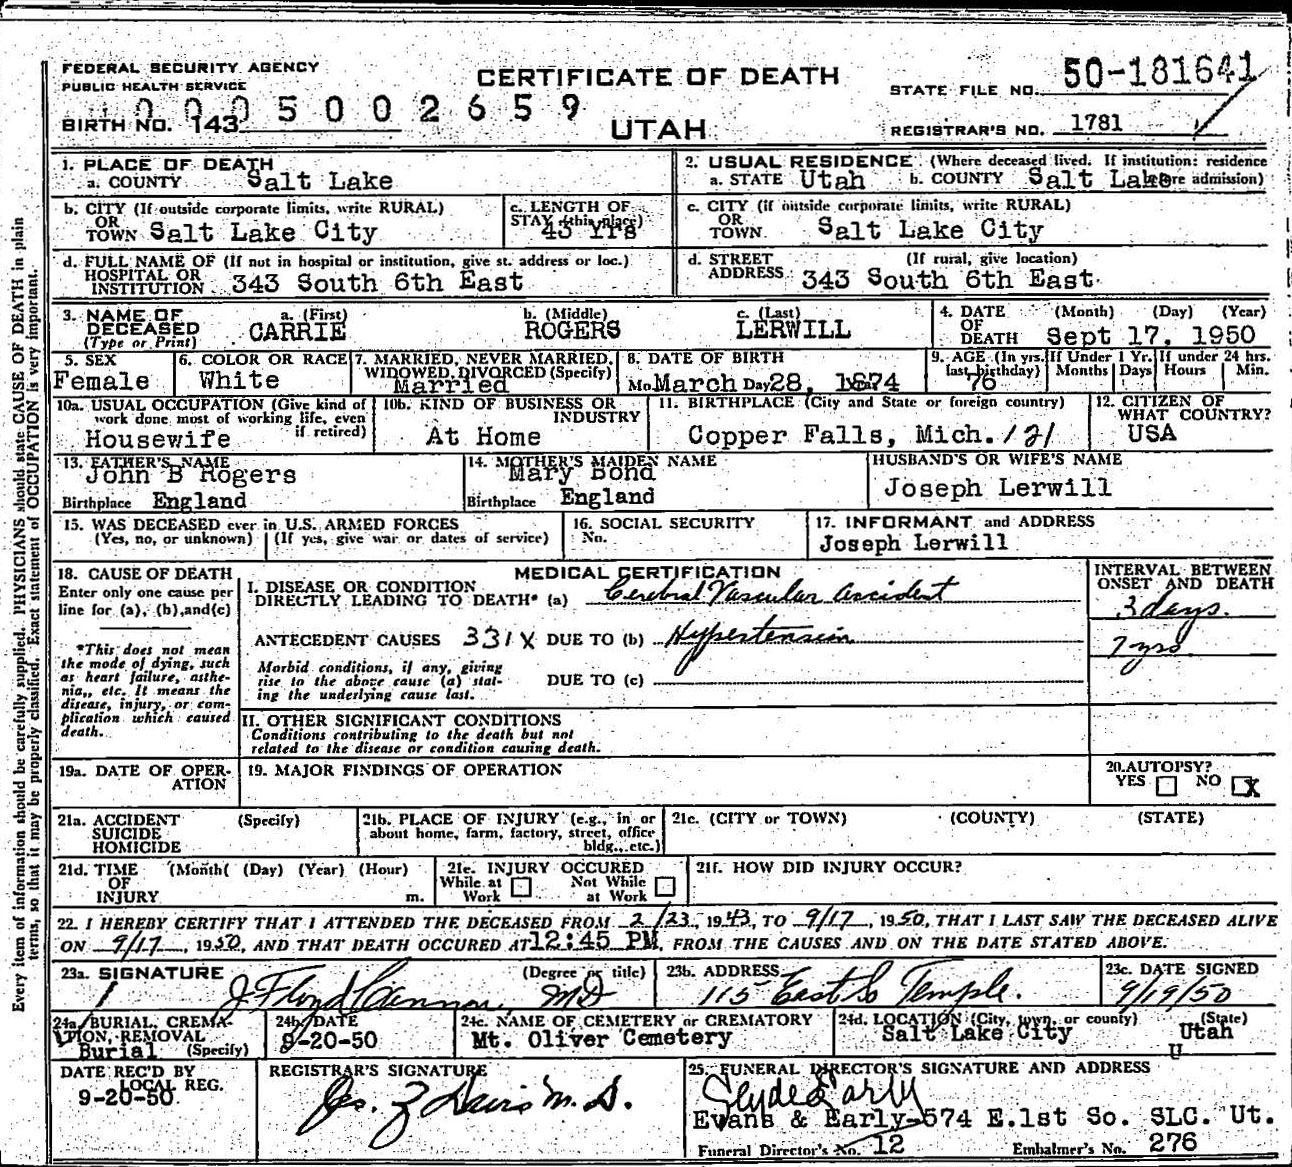 FEDERAL SECURITY AGENCY
PUBLIC HEALTH SERVICE
CERTIFICATE OF DEATH
STATE FILE NO. 50-181641
0005002659
BIRTH NO. 143
UTAH
REGISTRAR'S NO. 1781
1. PLACE OF DEATH
a. COUNTY Salt Lake
2. USUAL RESIDENCE (Where deceased lived. If institution: residence before admission)
a. STATE Utah b. COUNTY Salt Lake
b. CITY (If outside corporate limits, write RURAL)
OR
TOWN Salt Lake City
c. LENGTH OF
STAY (this place)
43 Yrs
c. CITY (if outside corporate limits, write RURAL)
OR
TOWN. Salt Lake City
d. FULL NAME OF (If not in hospital or institution, give st. address or loc.)
HOSPITAL OR
INSTITUTION 343 South 6th East
d. STREET (If rural, give location)
ADDRESS 343 South 6th East
3. NAME OF DECEASED (Type or Print)
a. (First) b. (Middle) c. (Last)
CARRIE ROGERS LERWILL
4. DATE OF DEATH (Month) (Day) (Year)
Sept 17, 1950
5. SEX
Female
6. COLOR OR RACE
White
7. MARRIED, NEVER MARRIED,
WIDOWED, DIVORCED (Specify)
Married
8. DATE OF BIRTH
Mo. March Day 28, 1874
9. AGE (In yrs. last birthday)
76
If Under 1 Yr. Months Days
If under 24 hrs. Hours Min.
10a. USUAL OCCUPATION (Give kind of
work done most of working life, even
if retired)
Housewife
10b. KIND OF BUSINESS OR
INDUSTRY
At Home
11. BIRTHPLACE (City and State or foreign country)
Copper Falls, Mich. 121
12. CITIZEN OF
WHAT COUNTRY?
USA
13. FATHER'S NAME
John B Rogers
Birthplace England
14. MOTHER'S MAIDEN NAME
Mary Bond
Birthplace England
HUSBAND'S OR WIFE'S NAME
Joseph Lerwill
15. WAS DECEASED ever in U.S. ARMED FORCES
(Yes, no, or unknown) (If yes, give war or dates of service)
16. SOCIAL SECURITY
No.
17. INFORMANT and ADDRESS
Joseph Lerwill
18. CAUSE OF DEATH
Enter only one cause per
line for (a), (b), and (c)
*This does not mean
the mode of dying, such
as heart failure, asthe-
nia,, etc. It means the
disease, injury, or com-
plication which caused
death.
MEDICAL CERTIFICATION
INTERVAL BETWEEN
ONSET AND DEATH
I. DISEASE OR CONDITION
DIRECTLY LEADING TO DEATH* (a) Cerebral Vascular accident
3 days.
ANTECEDENT CAUSES 331X DUE TO (b) Hypertension
7 yrs
Morbid conditions, if any, giving
rise to the above cause (a) stat-
ing the underlying cause last.
DUE TO (c)
II. OTHER SIGNIFICANT CONDITIONS
Conditions contributing to the death but not
related to the disease or condition causing death.
19a. DATE OF OPER-
ATION
19. MAJOR FINDINGS OF OPERATION
20. AUTOPSY?
YES NO X
21a. ACCIDENT (Specify)
SUICIDE
HOMICIDE
21b. PLACE OF INJURY (e.g., in or
about home, farm, factory, street, office
bldg., etc.)
21c. (CITY or TOWN) (COUNTY) (STATE)
21d. TIME (Month( (Day) (Year) (Hour)
OF
INJURY m.
21e. INJURY OCCURED
While at Work Not While at Work
21f. HOW DID INJURY OCCUR?
22. I HEREBY CERTIFY THAT I ATTENDED THE DECEASED FROM 2/23, 1943, TO 9/17, 1950, THAT I LAST SAW THE DECEASED ALIVE
ON 9/17, 1950, AND THAT DEATH OCCURED AT 12:45 PM, FROM THE CAUSES AND ON THE DATE STATED ABOVE.
23a. SIGNATURE (Degree or title)
J. Floyd Cannon, MD
23b. ADDRESS
115 East So Temple.
23c. DATE SIGNED
9/19/50
24a. BURIAL, CREMA-
TION, REMOVAL
Burial (Specify)
24b. DATE
9-20-50
24c. NAME OF CEMETERY or CREMATORY
Mt. Oliver Cemetery
24d. LOCATION (City, town, or county) (State)
Salt Lake City Utah
U
DATE REC'D BY
LOCAL REG.
9-20-50
REGISTRAR'S SIGNATURE
Jos. Z Davis M.D.
25. FUNERAL DIRECTOR'S SIGNATURE AND ADDRESS
Clyde Early
Evans & Early-574 E.1st So. SLC. Ut.
Funeral Director's No. 12 Embalmer's No. 276
Every item of information should be carefully supplied. PHYSICIANS should state CAUSE OF DEATH in plain
terms, so that it may be properly classified. Exact statement of OCCUPATION is very important.